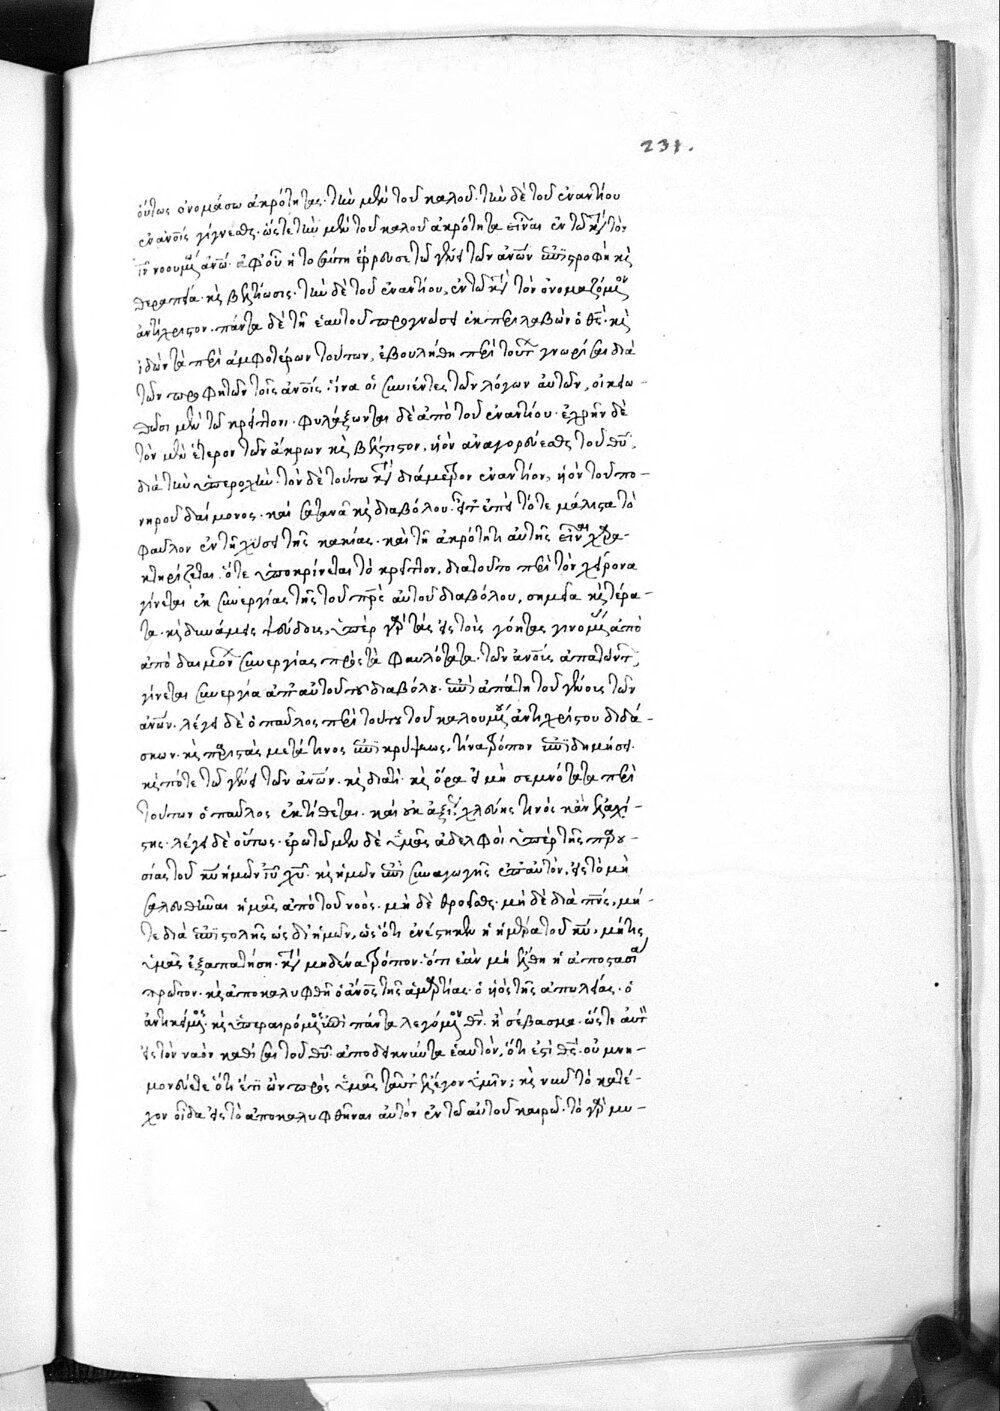 231.
οὕτως ὀνομάσω ἀκρότητας· τὴν μὲν τοῦ καλοῦ. τὴν δὲ τοῦ ἐναντίου
ἐν ἀνοῖς γίγνεσθαι. ὥστε τὴν μὲν τοῦ καλοῦ ἀκρότητα εἶναι ἐν τῷ κτ τὸν
ιν νοουμένῳ ἀνω. ἀφ' οὗ ἡ τοσαύτη ἔρρευσε τῷ γένει τῶν ἀνων ἐπιστροφὴ καὶ
θεραπεία. καὶ βελτίωσις· τὴν δὲ τοῦ ἐναντίου, ἐν τῷ κτ τὸν ὀνομαζόμενον
ἀντίχριστον. πάντα δὲ τῇ ἑαυτοῦ προγνώσει ἐκπεριλαβὼν ὁ θς. καὶ
ἰδὼν τὰ περὶ ἀμφοτέρων τούτων, ἐβουλήθη περὶ τούτων γνωρίσαι διὰ
τῶν προφητῶν τοῖς ἀνοις· ἵνα οἱ συνιέντες τῶν λόγων αὐτῶν, οἰκειω-
θῶσι μὲν τῷ κρείττονι. φυλάξωνται δὲ ἀπὸ τοῦ ἐναντίου. ἐχρῆν δὲ
τὸν μὲν ἕτερον τῶν ἄκρων καὶ βέλτιστον, υἱὸν ἀναγορεύεσθαι τοῦ θυ,
διὰ τὴν ὑπεροχήν. τὸν δὲ τούτω κτ διάμετρον ἐναντίον, υἱὸν τοῦ πο-
νηροῦ δαίμονος. καὶ σατανᾶ καὶ διαβόλου. εἶτ' ἐπεὶ τότε μάλιστα τὸ
φαῦλον ἐν τῇ χύσει τῆς κακίας. καὶ τῇ ἀκρότητι αὐτῆς εἶναι χαρα-
κτηρίζεται. ὅτε ὑποκρίνεται τὸ κρεῖττον, διατοῦτο περὶ τὸν χείρονα
γίνεται ἐκ συνεργίας τῆς τοῦ πρς αὐτοῦ διαβόλου, σημεῖα καὶ τέρα-
τα. καὶ δυνάμεις ψεύδους, ὑπὲρ γὰρ τὰς εἰς τοὺς γόητας γινομένας ἀπὸ
ἀπὸ δαιμόνων συνεργίας πρὸς τὰ φαυλότατα. τῶν ἀνοις ἀπατώντων,
γίνεται συνεργία ἀπ' αὐτοῦ τοῦ διαβόλου. ἐπὶ ἀπάτῃ τοῦ γένους τῶν
ἀνων. λέγει δὲ ὁ παῦλος περὶ τούτου τοῦ καλουμένου ἀντιχρίστου διδά-
σκων. καὶ παριστὰς μετά τινος ἐπικρύψεως, τίνα τρόπον ἐπιδημήσει.
καὶ πότε τῷ γένει τῶν ἀνων. καὶ διατί. καὶ ὅρα εἰ μὴ σεμνότατα περὶ
τούτων ὁ παῦλος ἐκτίθεται. καὶ οὐκ ἄξια χλεύης τινὸς κἂν ἐλαχί-
στης. λέγει δὲ οὕτως· ἐρωτῶμεν δὲ ὑμᾶς ἀδελφοὶ ὑπὲρ τῆς παρου-
σίας τοῦ κυ ἡμῶν ιυ χυ. καὶ ἡμῶν ἐπὶ συναγωγῆς ἐπ' αὐτὸν, εἰς τὸ μὴ
σαλευθῆναι ἡμᾶς ἀπὸ τοῦ νοός. μὴ δὲ θροεῖσθαι. μὴ δὲ διὰ πνς, μή-
τε διὰ ἐπιστολῆς ὡς δι' ἡμῶν, ὡς ὅτι ἐνέστηκεν ἡ ἡμέρα τοῦ κυ, μήτις
ὑμᾶς ἐξαπατήσῃ. κτ μηδένα τρόπον. ὅτι ἐὰν μὴ ἔλθη ἡ ἀποστασία
πρῶτον. καὶ ἀποκαλυφθῇ ὁ ἀνος τῆς ἁμαρτίας. ὁ υἱὸς τῆς ἀπωλείας. ὁ
ἀντικείμενος. καὶ ὑπεραιρόμενος ἐπὶ πάντα λεγόμενον θν. ἢ σέβασμα. ὥστε αὐτὸν
εἰς τὸν ναὸν καθίσαι τοῦ θυ. ἀποδεικνύντα ἑαυτὸν, ὅτι ἐστὶ θς. οὐ μνη-
μονεύετε ὅτι ἔτι ὢν πρὸς ὑμᾶς ταῦτα ἔλεγον ὑμῖν; καὶ νῦν τὸ κατέ-
χον οἴδα εἰς τὸ ἀποκαλυφθῆναι αὐτὸν ἐν τῷ αὐτοῦ καιρῷ. τὸ γὰρ μυ-